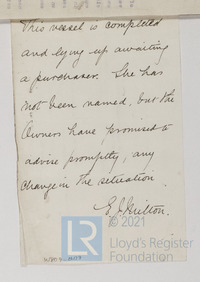 This vessel is completed
and lying up awaiting
a purchaser. She has
not been named, but the
Owners have promised to
advise promptly, any
change in the situation
E J Milton.
LR
© 2021
Lloyd's Register
Foundation